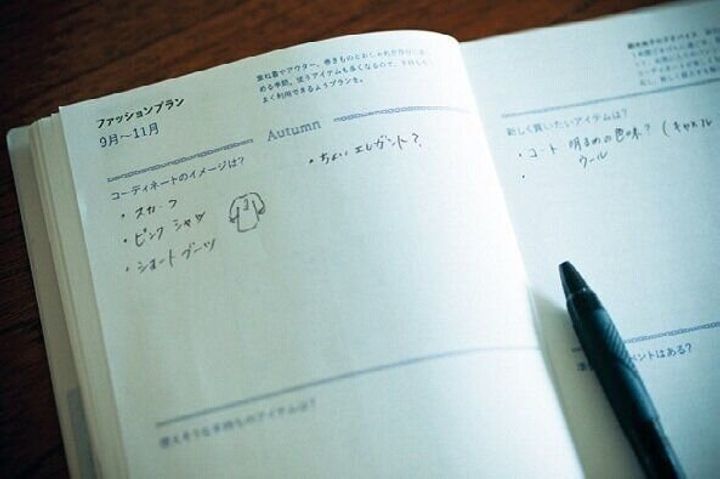 ファッションプラン
9月〜11月
重ね着やアウター、巻きものとおしゃれが
める季節。使うアイテムも多くなるので、手持ちも
まく利用できるようプランを。
Autumn
コーディネートのイメージは?
・スカーフ
・ピンク シャツ
・ショートブーツ
・ちょいエレガント?
使えそうな手持ちのアイテムは?
新しく買いたいアイテムは?
・コート 明るめの色味?(キャメル
ウール
・
ベントはある?